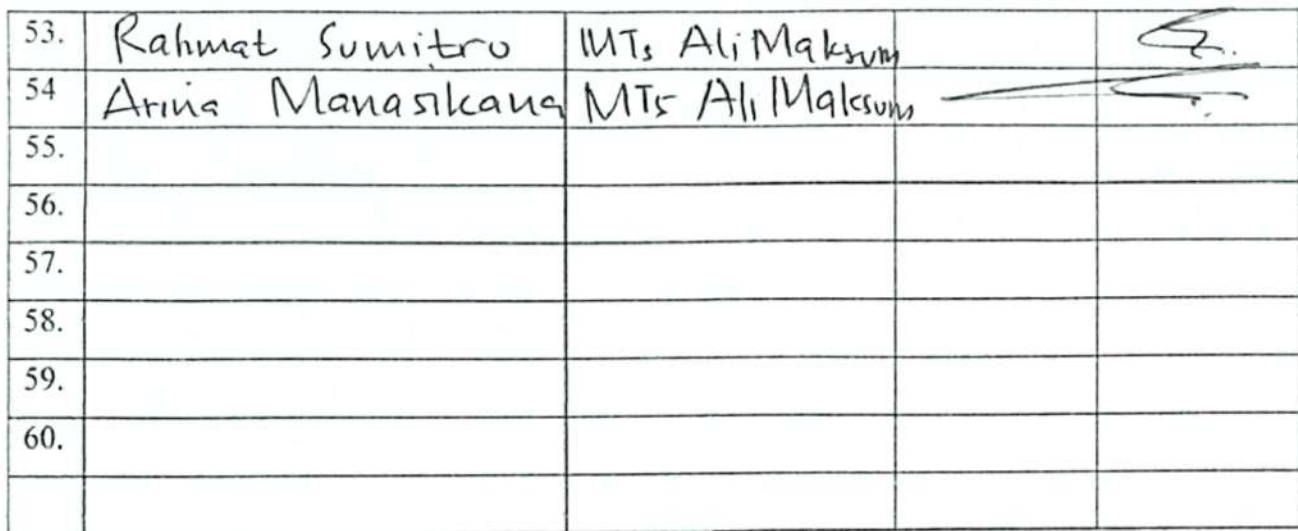 53. Rahmat Sumitro MTs Ali Maksum
54 Arina Manasikana MTs Ali Maksum
55.
56.
57.
58.
59.
60.